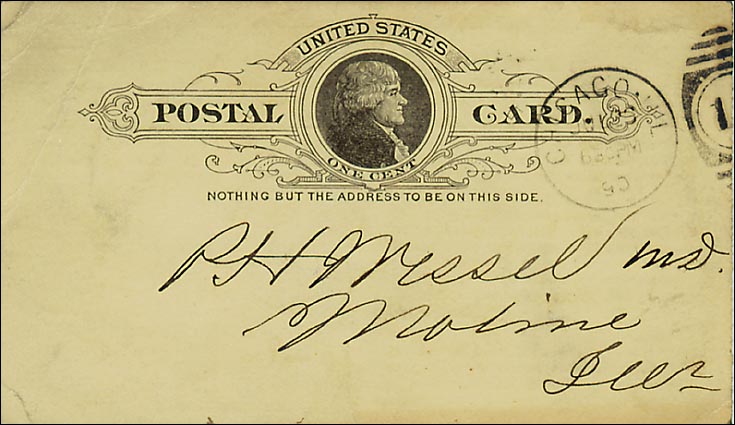 UNITED STATES
POSTAL CARD.
ONE CENT
NOTHING BUT THE ADDRESS TO BE ON THIS SIDE.
CHICAGO. ILL
P H Wessel MD.
Moline
Ills
1